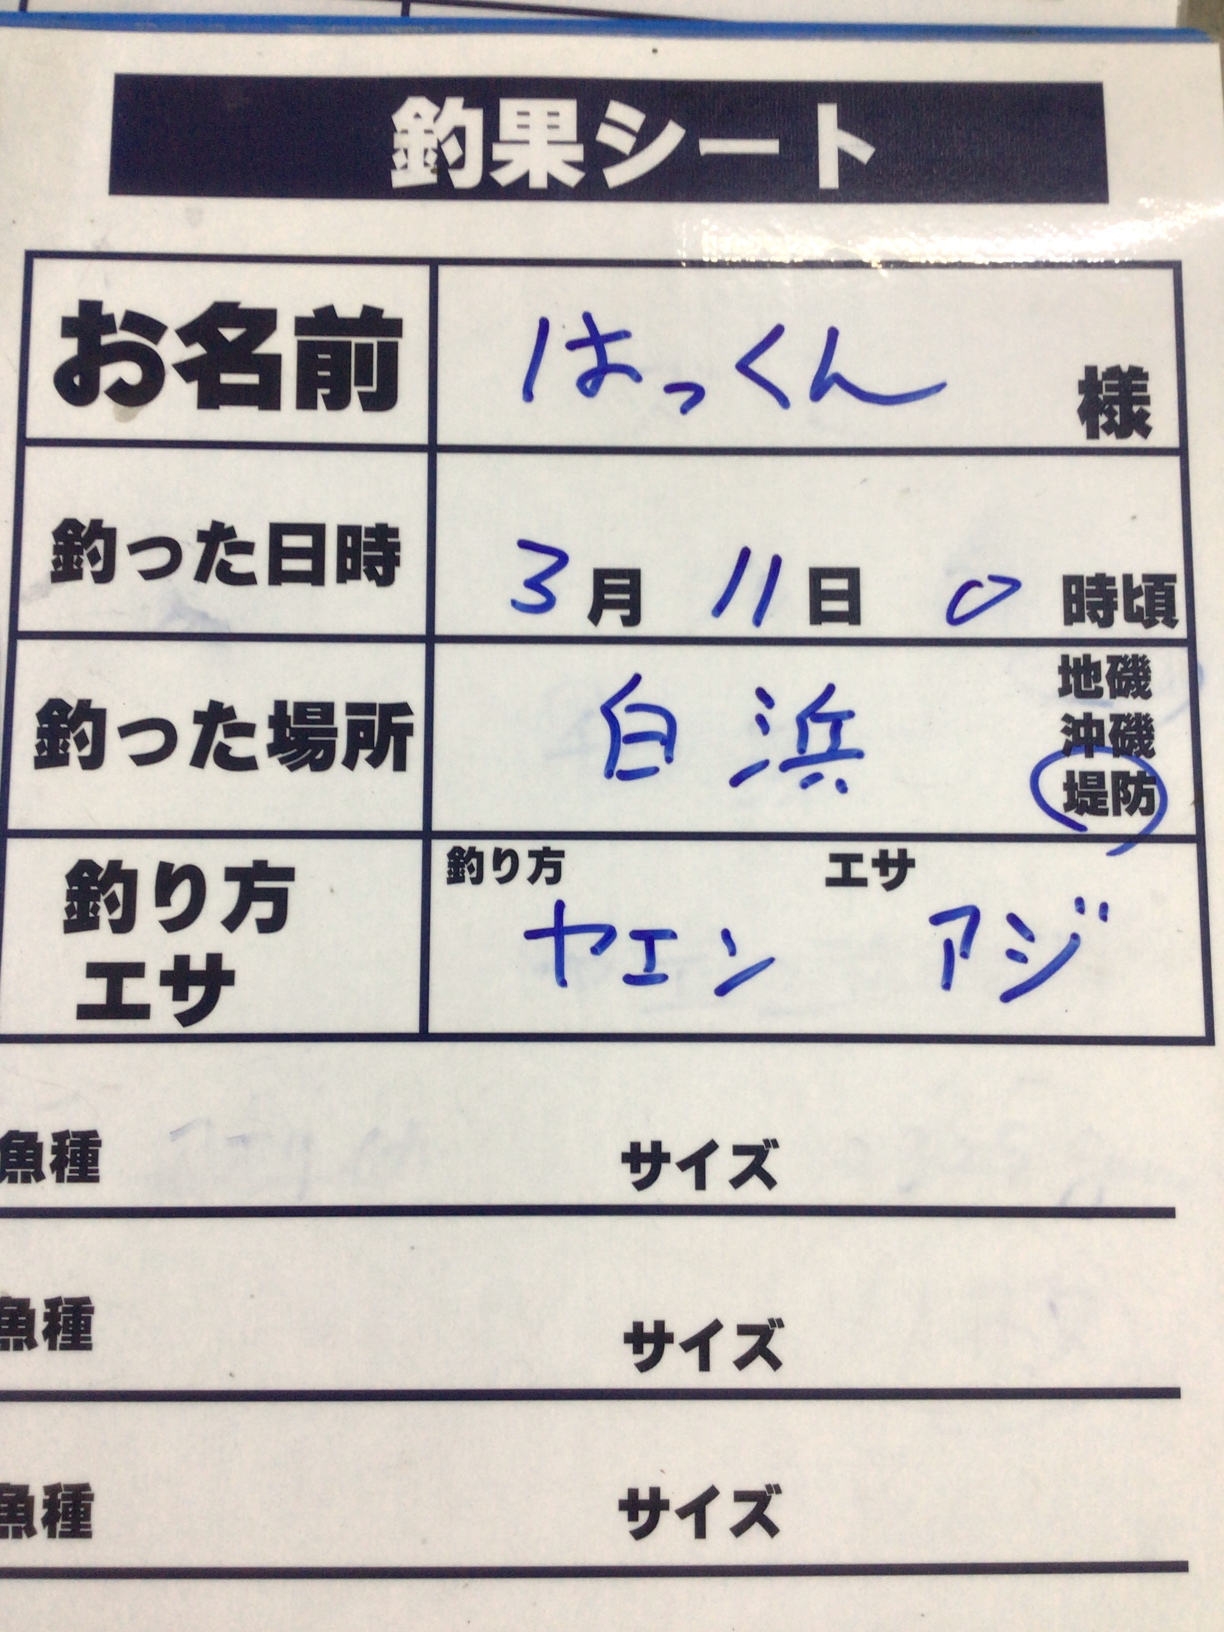 釣果シート
お名前 はっくん 様
釣った日時 3月 11日 0時頃
釣った場所 白浜 地磯
沖磯
堤防
釣り方 エサ
釣り方
エサ
ヤエン アジ
魚種 サイズ
魚種 サイズ
魚種 サイズ